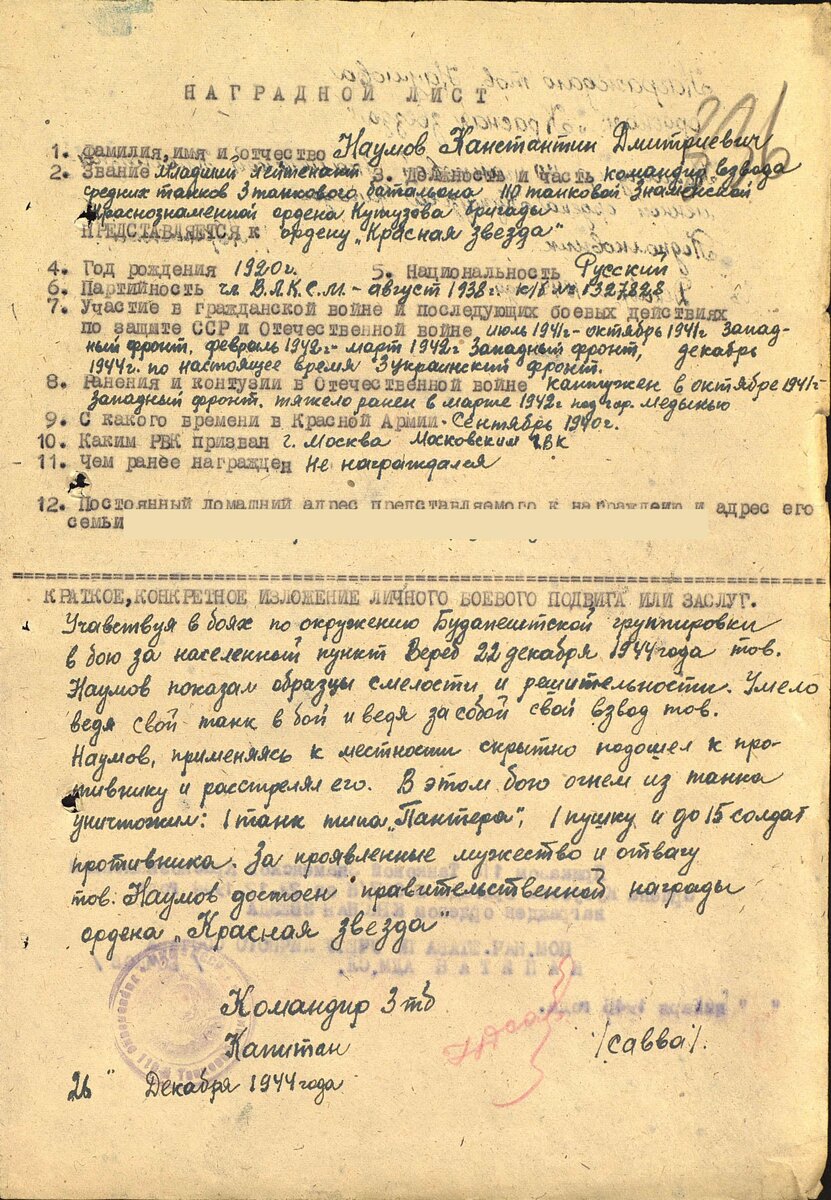 НАГРАДНОЙ ЛИСТ
1. Фамилия, имя и отчество Наумов Канстантин Дмитриевич
2. Звание Младший лейтенант 3. Должность и часть командир взвода
средних танков 3 танкового батальона 110 танковой Знаменской
Краснознаменной ордена Кутузова бригады
ПРЕДСТАВЛЯЕТСЯ к ордену „Красная звезда"
4. Год рождения 1920 г. 5. Национальность Русский
6. Партийность чл. В.Л.К.С.М. - август 1938 г. к/б № 1327828
7. Участие в гражданской войне и последующих боевых действиях
по защите ССР и Отечественной войне июль 1941 г - октябрь 1941 г Запад-
ный фронт. февраль 1942 г - март 1942 г Западный фронт, декабрь
1944 г. по настоящее время 3 украинский фронт.
8. Ранения и контузии в Отечественной войне кантужен в октябре 1941 г
Западный фронт. тяжело ранен в марте 1942 г под гор. Медынью
9. С какого времени в Красной Армии Сентябрь 1940 г.
10. Каким РВК призван г. Москва Московским ГВК
11. Чем ранее награжден Не награждался
12. Постоянный домашний адрес представляемого к награждению и адрес его
семьи
КРАТКОЕ, КОНКРЕТНОЕ ИЗЛОЖЕНИЕ ЛИЧНОГО БОЕВОГО ПОДВИГА ИЛИ ЗАСЛУГ.
Учавствуя в боях по окружению Будапештской группировки
в бою за населенный пункт Вереб 22 декабря 1944 года тов.
Наумов показал образцы смелости и решительности. Умело
ведя свой танк в бой и ведя за собой свой взвод тов.
Наумов, применяясь к местности скрытно подошел к про-
тивнику и расстрелял его. В этом бою огнем из танка
уничтожил: 1 танк типа „Пантера", 1 пушку и до 15 солдат
противника. За проявленные мужество и отвагу
тов. Наумов достоен правительственной награды
ордена „Красная звезда"
Командир 3 тб
Капитан /Савва/.
26 " Декабря 1944 года